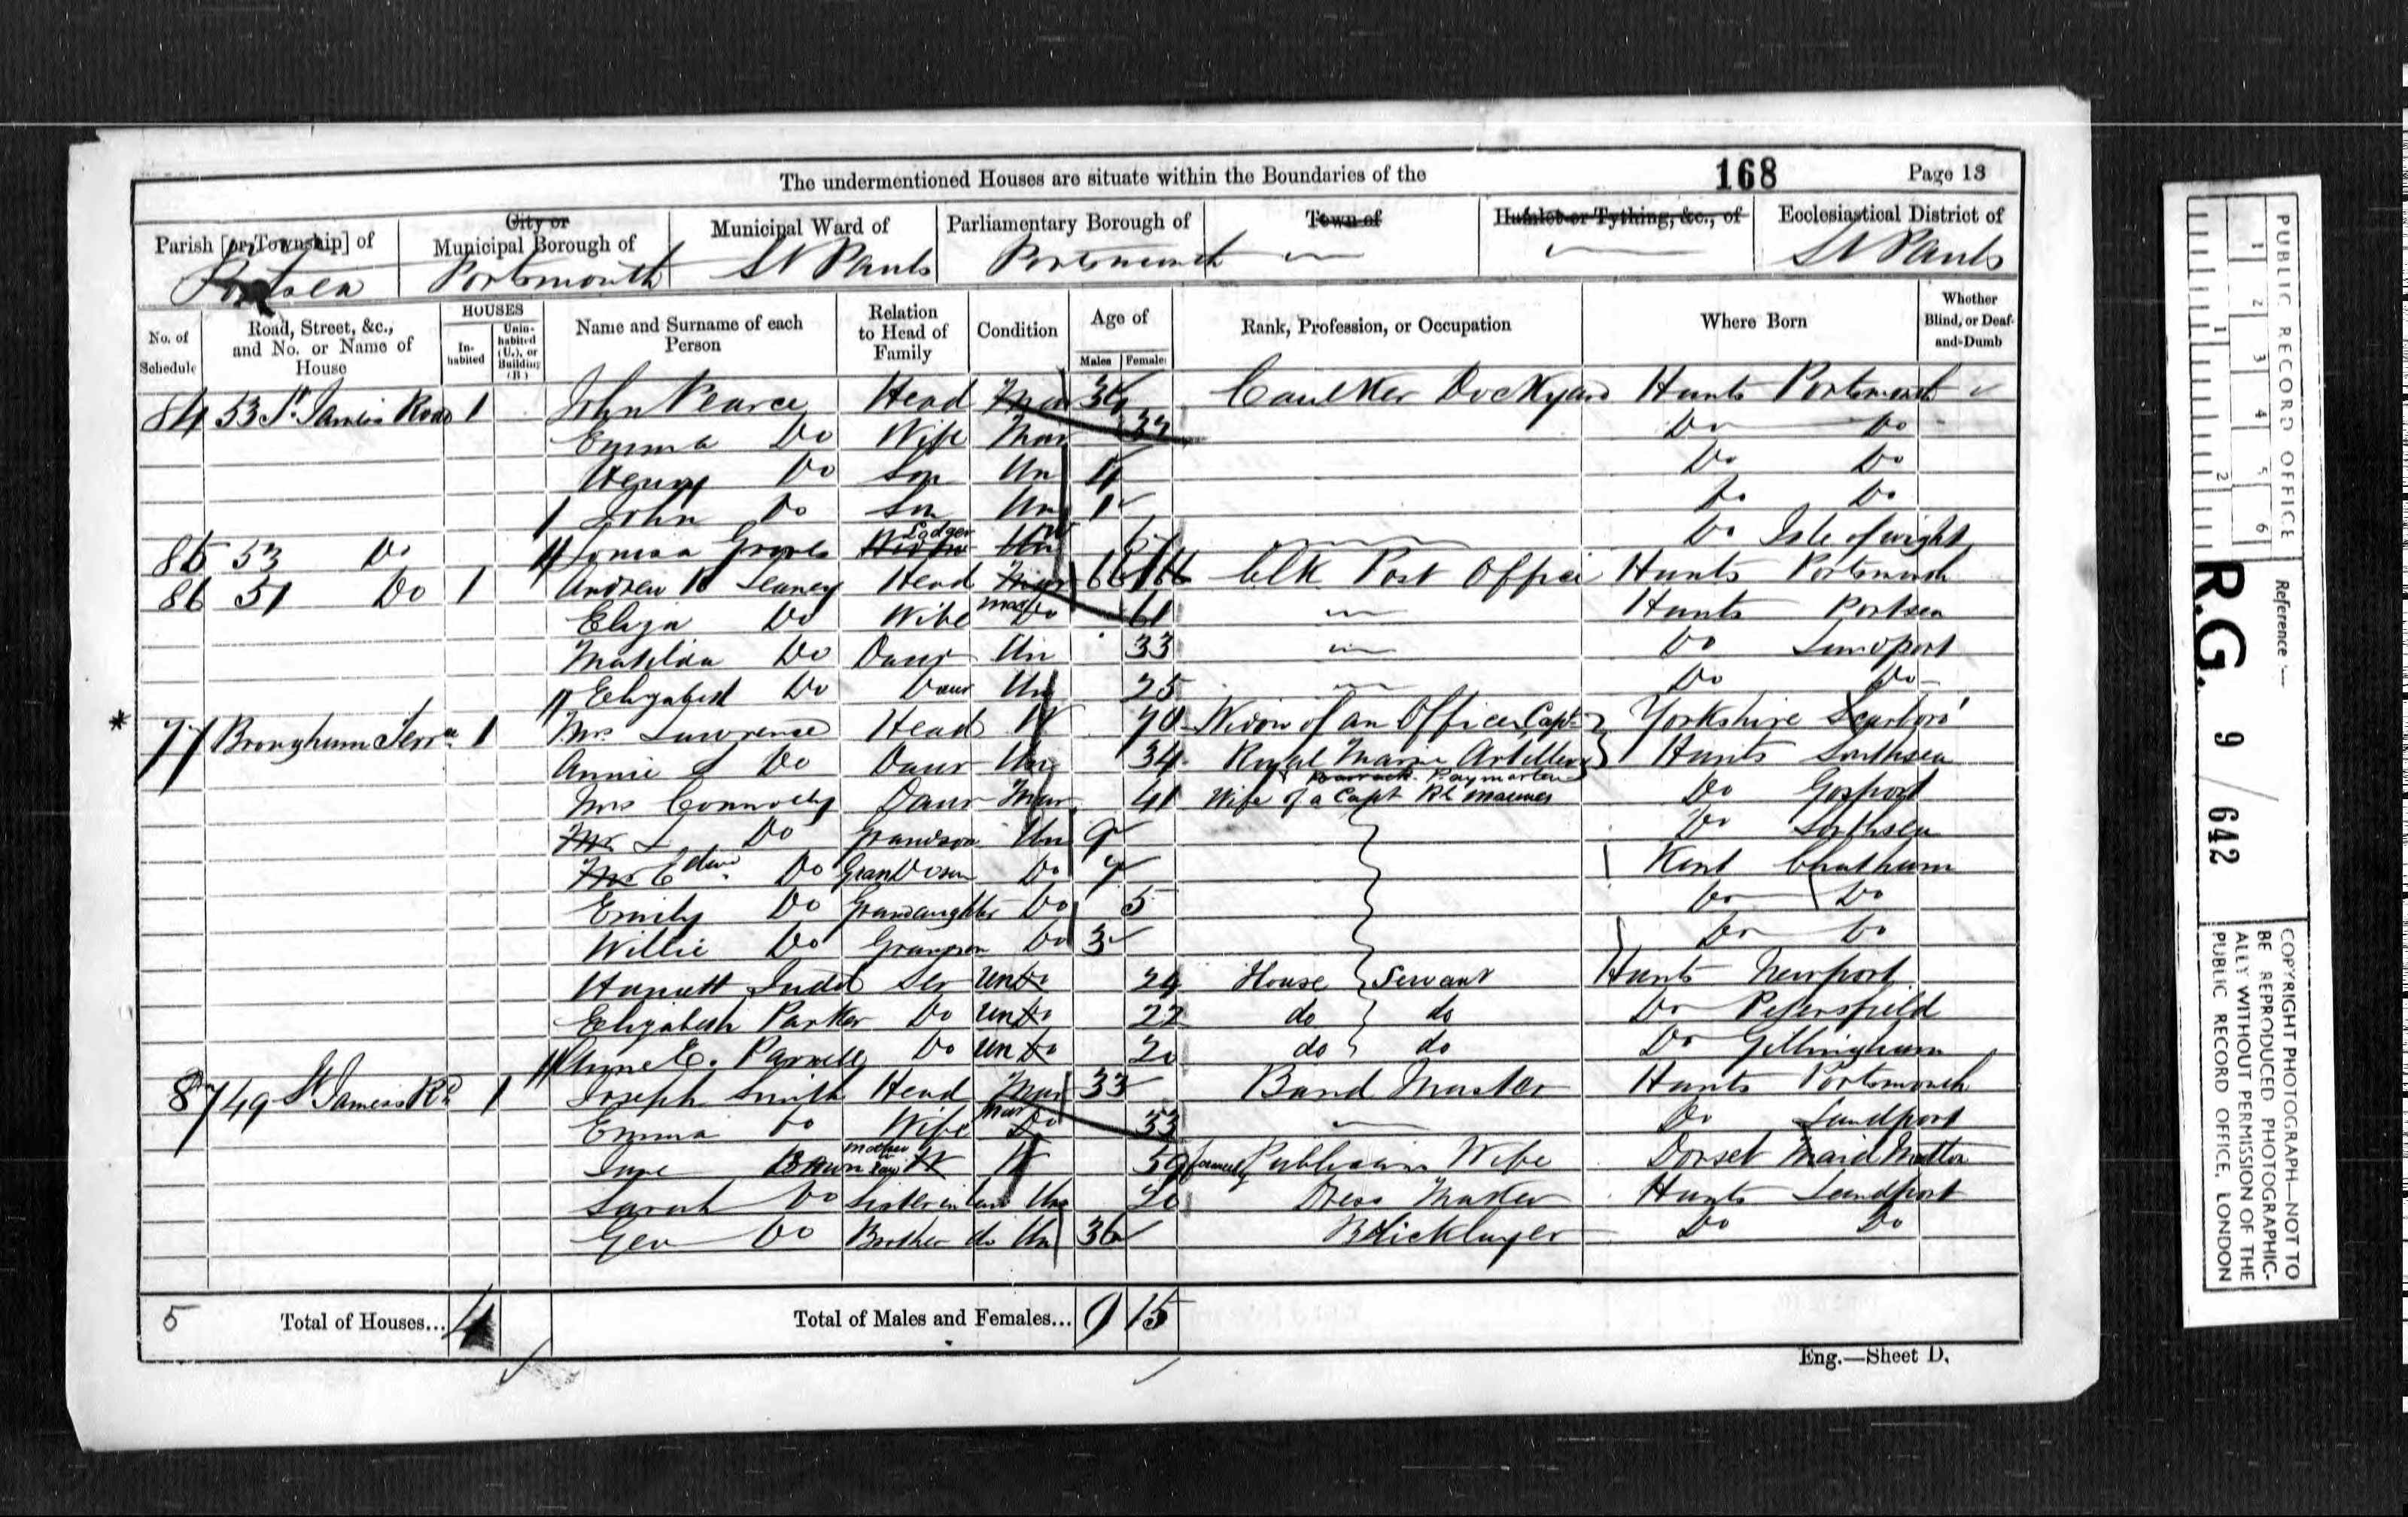 The undermentioned Houses are situate within the Boundaries of the 168 Page 13
Parish [or Township] of City or Municipal Borough of Municipal Ward of Parliamentary Borough of Town of Hamlet or Tything, &c., of Ecclesiastical District of
Portsea Portsmouth St Pauls Portsmouth — — St Pauls
No. of Schedule Road, Street, &c., and No. or Name of House HOUSES Inhabited Uninhabited (U.), or Building (B.) Name and Surname of each Person Relation to Head of Family Condition Age of Males Females Rank, Profession, or Occupation Where Born Whether Blind, or Deaf-and-Dumb
84 53 St James Road 1 John Pearce Head Mar Caulker Dockyard Hants Portsmouth
Emma Do Wife Mar Do Do
Henry Do Son Un 4 Do Do
John Do Son Un 1 Do Do
85 53 Do Louisa Lodger Do Isle of wight
86 51 Do 1 Andrew Head Mar 66 Clk Post Office Hants Portsmouth
Eliza Do Wife Mar Do 61 — Hants Portsea
Matilda Do Daur Un 33 — Do Landport
Elizabeth Do Daur Un 25 — Do Do
* 77 Brougham Terra 1 Mrs Lawrence Head W 70 Widow of an Officer Capt Yorkshire Scarboro'
Annie Do Daur Un 34 Royal Marine Artillery Hants Southsea
Barrack Paymaster
Mrs Connolly Daur Mar 41 Wife of a Capt Rl Marines Do Gosport
Mr L Do Grandson Un 9 Do Southsea
Mr Edw Do GrandDson Do 7 Kent Chatham
Emily Do Grandaughter Do 5 Do Do
Willie Do Grandson Do 3 Do Do
Harriett Judd Ser Un Do 24 House Servant Hants Newport
Elizabeth Parker Do Un Do 22 do do Do Petersfield
Anne E. Parnell Do Un Do 20 do do Do Gillingham
87 49 St James Rd 1 Joseph Smith Head Mar 33 Band Master Hants Portsmouth
Emma Do Wife Mar Do 33 — Do Landport
Jane Mother in law W 59 formerly Publicians Wife Dorset
Sarah Do Sister in law Un 20 Dress Maker Hants Landport
Geo Do Brother do Un 36 Bricklayer Do Do
5 Total of Houses... 4 Total of Males and Females... 9 15
Eng.—Sheet D.
PUBLIC RECORD OFFICE
1 2 3 4 5 6
1 2
Reference:—
R.G. 9 / 642
COPYRIGHT PHOTOGRAPH—NOT TO
BE REPRODUCED PHOTOGRAPHIC-
ALLY WITHOUT PERMISSION OF THE
PUBLIC RECORD OFFICE, LONDON